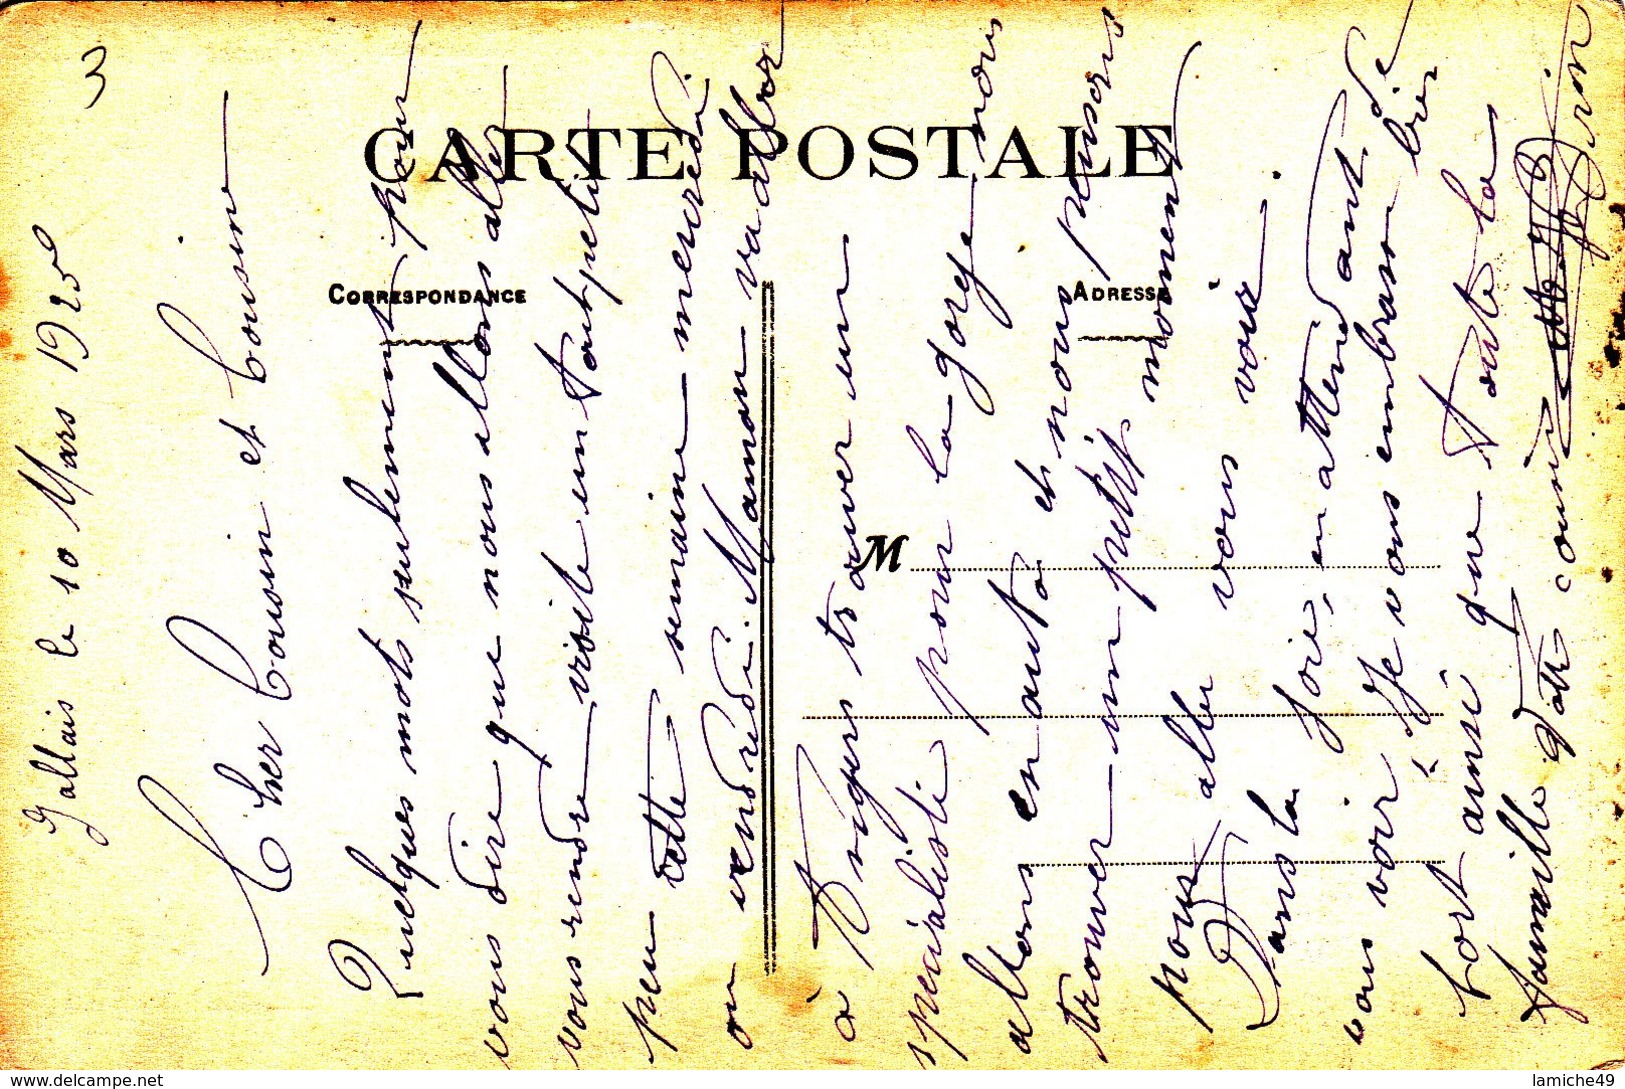 3
CARTE POSTALE
CORRESPONDANCE
ADRESSE
M
Jallais le 10 Mars 1925
Cher Cousin et Cousine
Quelques mots seulement pour
vous dire que nous allons aller
vous rendre visite un tout petit
peu cette semaine mercredi
ou vendredi. Maman va aller
à Angers trouver un
spécialiste pour la gorge nous
allons en auto et nous pensons
trouver un petit moment
pour aller vous voir.
Dans la joie, en attend ant de
vous voir Je vous embrasse bien
fort ainsi que toute la
famille Votre cousine
lamiche49
www.delcampe.net